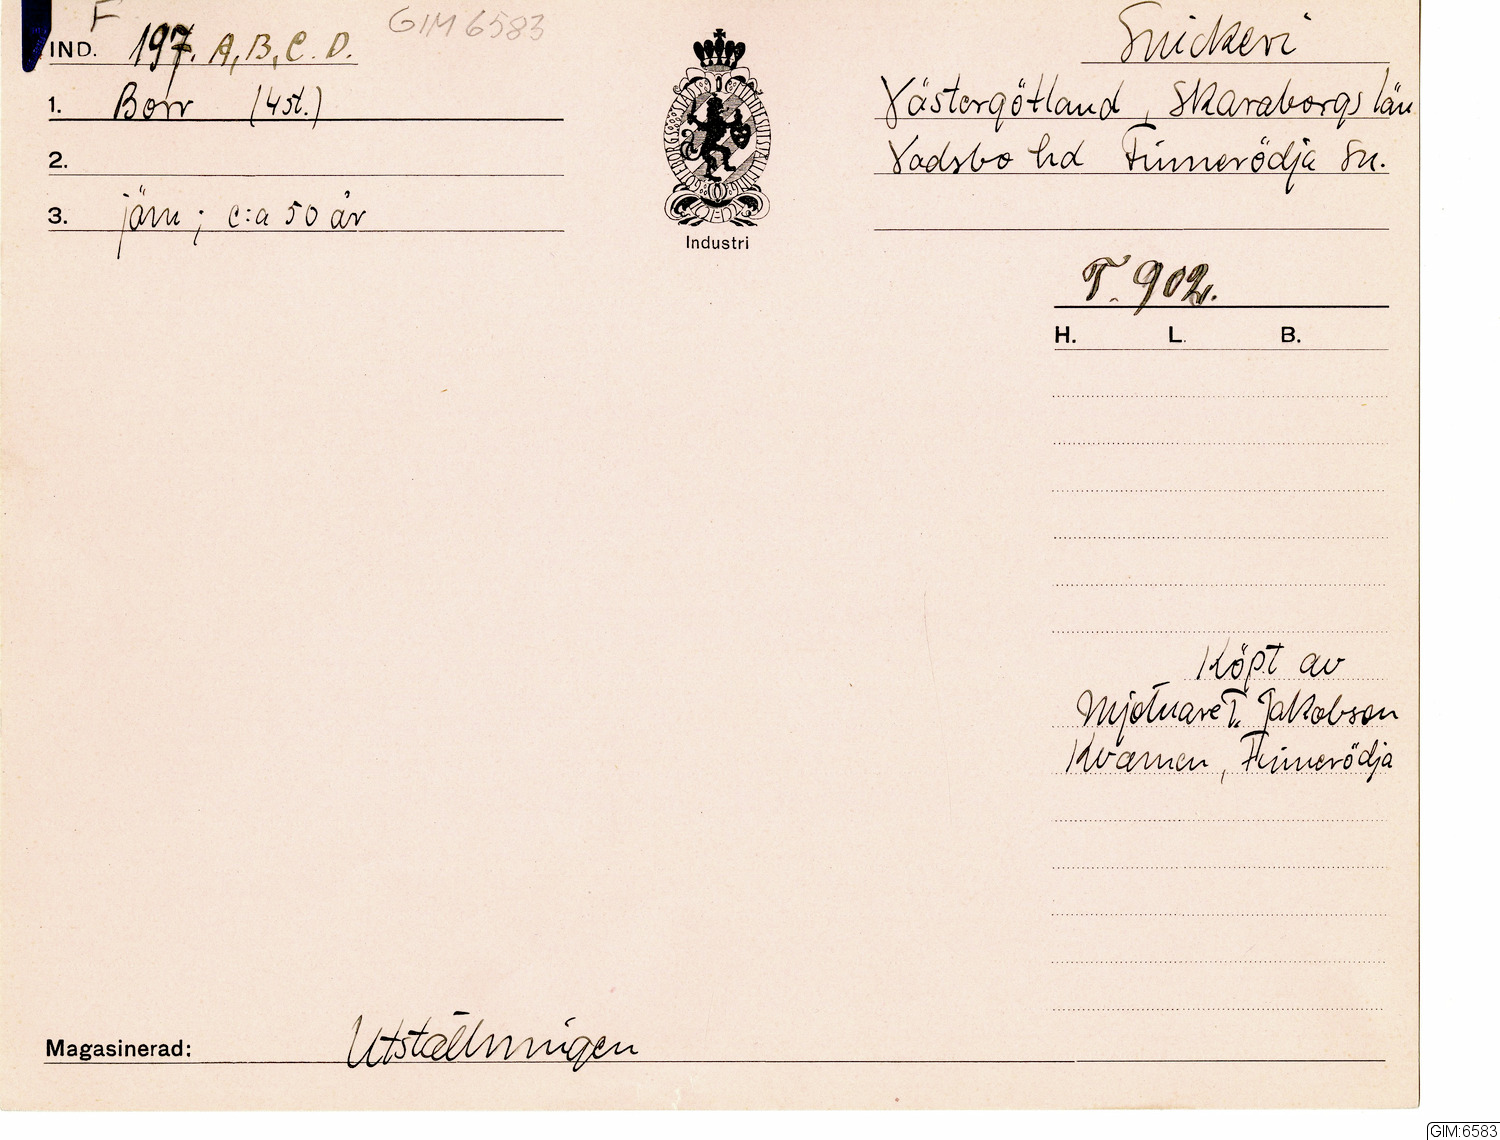 F
GIM 6583
IND. 197. A, B, C. D.
Snickeri
1. Borr (4 st.)
Västergötland, Skaraborgs län
2.
Vadsbo hd Finnerödja sn.
3. järn; c:a 50 år
Industri
T. 902.
H. L. B.
Köpt av
Mjölnare T. Jakobson
Kvarnen, Finnerödja
Magasinerad: Utställningen
GIM:6583